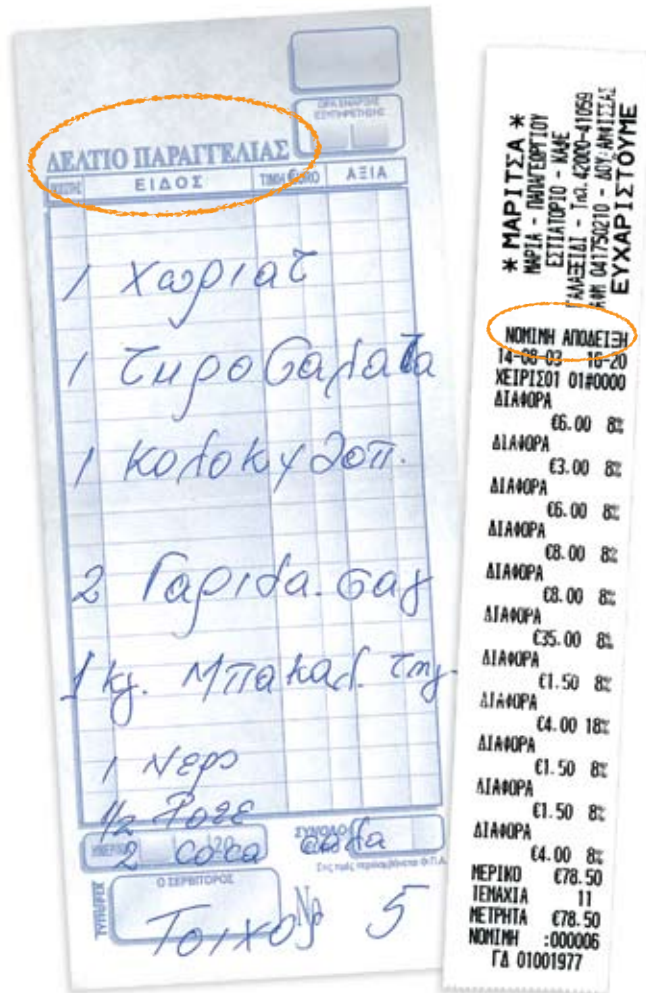 ΔΕΛΤΙΟ ΠΑΡΑΓΓΕΛΙΑΣ
ΕΙΔΟΣ ΤΙΜΗ EURO ΑΞΙΑ
1 Χωριατ
1 Τυροσαλατα
1 Κολοκυθοπ.
2 Γαριδα. σαγ
1 kg. Μπακαλ. τηγ.
1 Νερο
1/2 Ροζε
2 coca cola
ΣΥΝΟΛΟ
Ο ΣΕΡΒΙΤΟΡΟΣ
Τοιχος Νο 5
* ΜΑΡΙΤΣΑ *
ΜΑΡΙΑ - ΠΑΠΑΓΕΩΡΓΙΟΥ
ΕΣΤΙΑΤΟΡΙΟ - ΚΑΦΕ
ΓΑΛΑΞΕΙΔΙ - Τηλ. 42000-41059
ΑΦΜ 041750210 - ΔΟΥ: ΑΜΦΙΣΣΑΣ
ΕΥΧΑΡΙΣΤΟΥΜΕ
ΝΟΜΙΜΗ ΑΠΟΔΕΙΞΗ
14-08-03 16-20
ΧΕΙΡΙΣ01 01#0000
ΔΙΑΦΟΡΑ
€6.00 8%
ΔΙΑΦΟΡΑ
€3.00 8%
ΔΙΑΦΟΡΑ
€6.00 8%
ΔΙΑΦΟΡΑ
€8.00 8%
ΔΙΑΦΟΡΑ
€8.00 8%
ΔΙΑΦΟΡΑ
€35.00 8%
ΔΙΑΦΟΡΑ
€1.50 8%
ΔΙΑΦΟΡΑ
€4.00 18%
ΔΙΑΦΟΡΑ
€1.50 8%
ΔΙΑΦΟΡΑ
€1.50 8%
ΔΙΑΦΟΡΑ
€4.00 8%
ΜΕΡΙΚΟ €78.50
ΤΕΜΑΧΙΑ 11
ΜΕΤΡΗΤΑ €78.50
ΝΟΜΙΜΗ :000006
ΓΔ 01001977